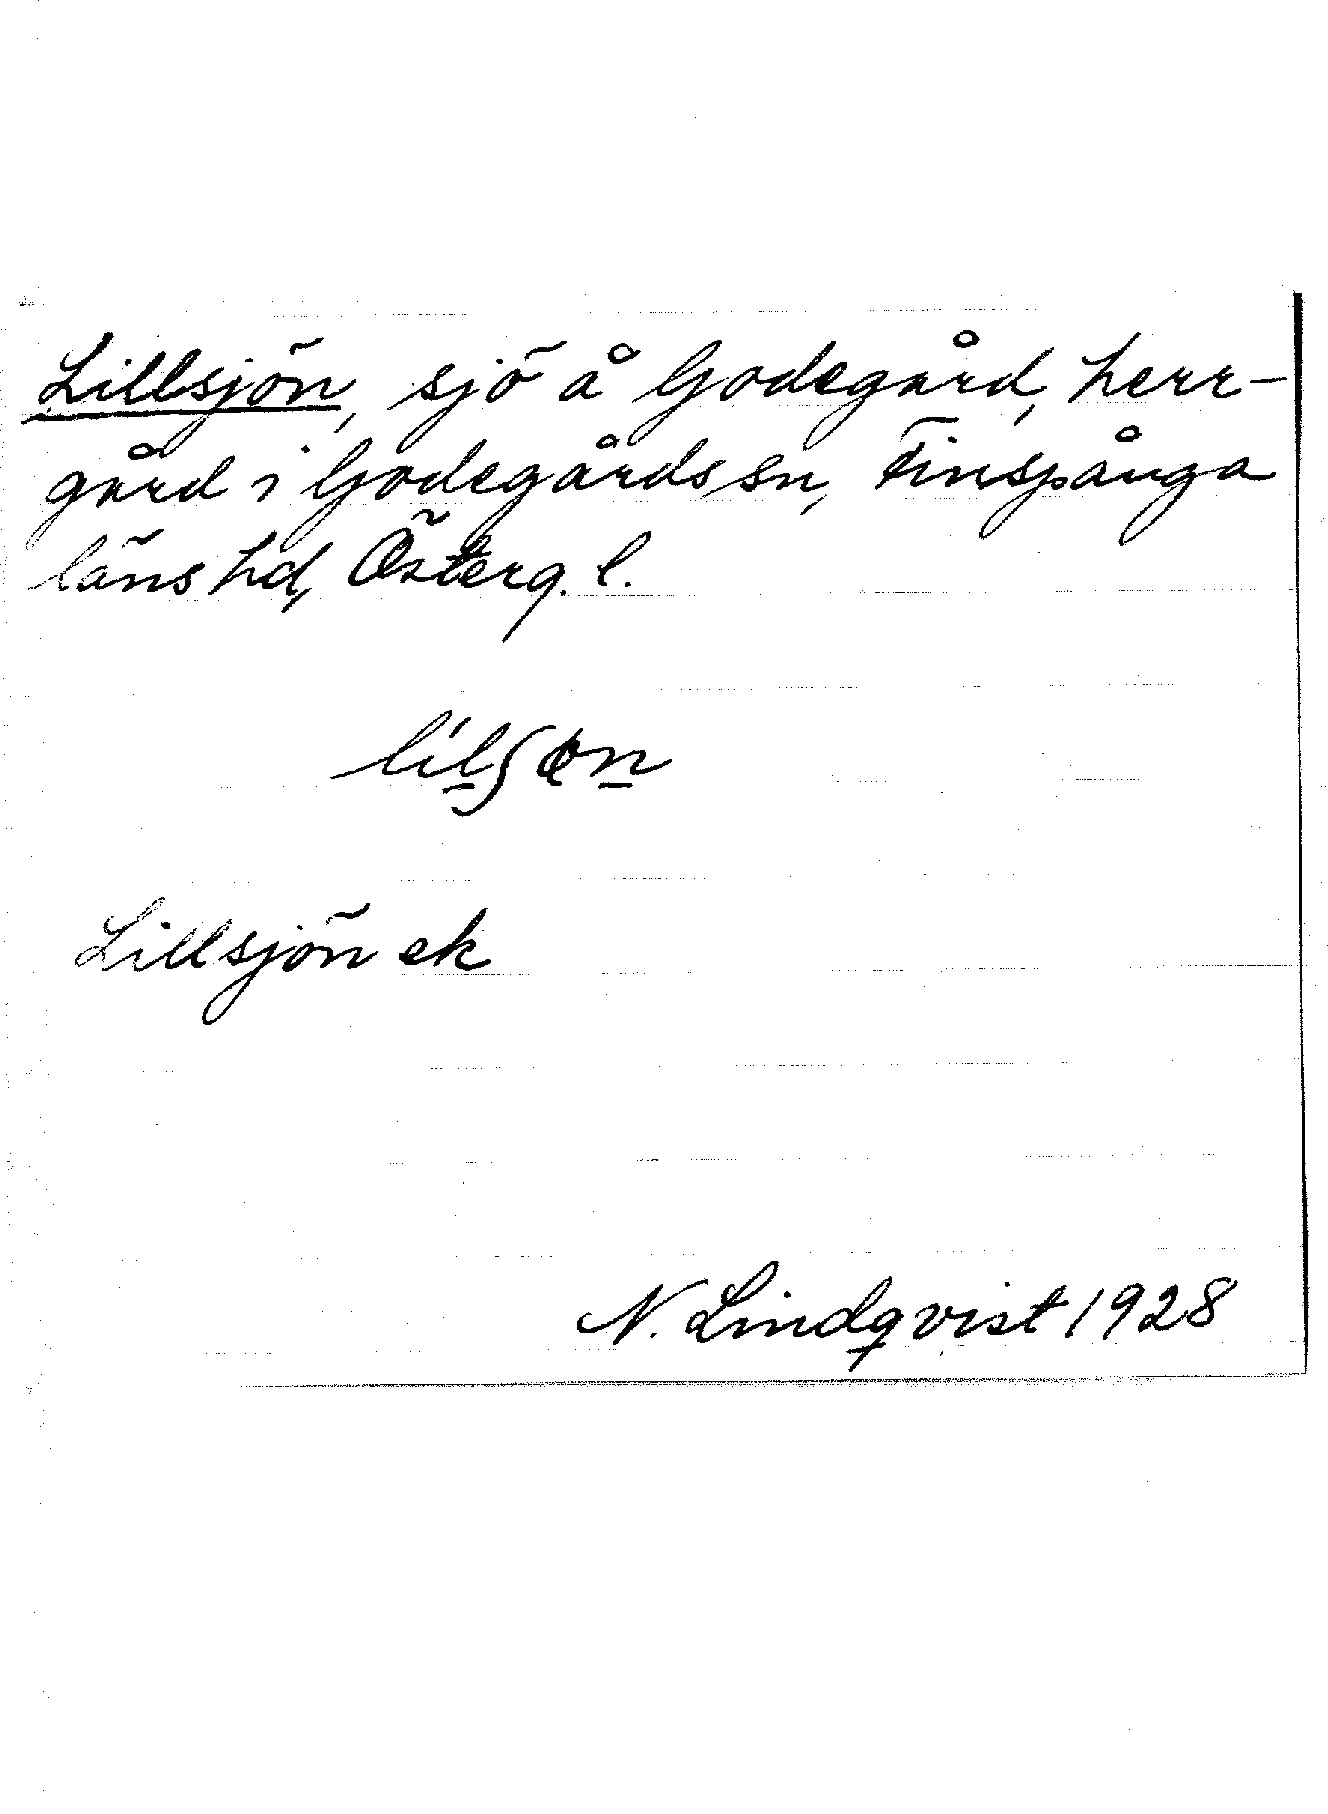 Lillsjön, sjö å Godegård, herr-
gård i Godegårds sn, Finspånga
läns hd, Österg. l.
Lillsjön ek
N. Lindqvist 1928